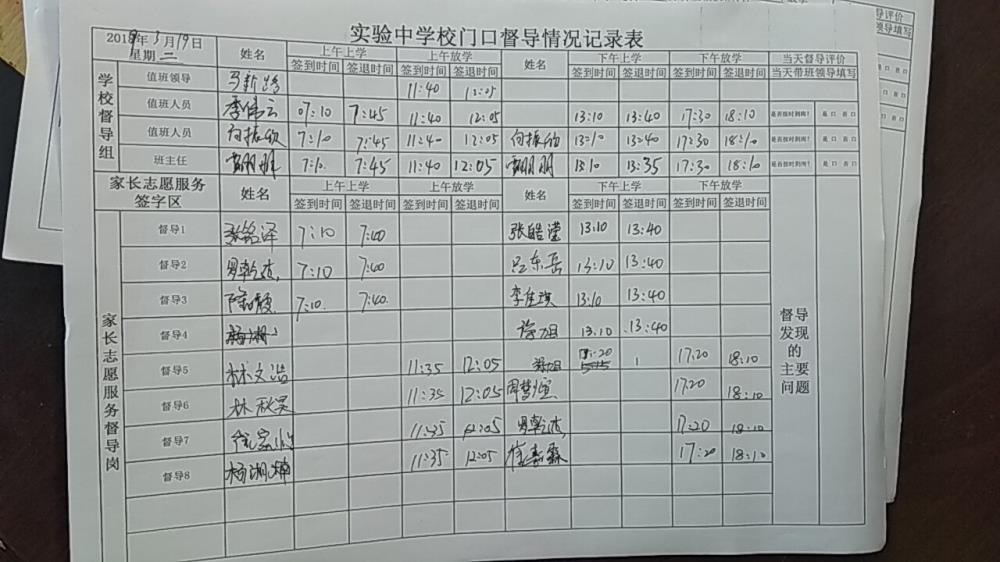 实验中学校门口督导情况记录表
3月19日
星期二
姓名 上午上学 上午放学 姓名 下午上学 下午放学 当天督导评价
签到时间 签退时间 签到时间 签退时间 签到时间 签退时间 签到时间 签退时间 当天带班领导填写
学校督导组
值班领导 11:40 12:05
值班人员 李伟云 07:10 7:45 11:40 12:05 13:10 13:40 17:30 18:10 是否按时到岗? 是口 否口
值班人员 向振欣 7:10 7:45 11:40 12:05 向振欣 13:10 13:40 17:30 18:10 是否按时到岗? 是口 否口
班主任 7:10 7:45 11:40 12:05 13:10 13:35 17:30 18:10 是否按时到岗? 是口 否口
家长志愿服务签字区 姓名 上午上学 上午放学 姓名 下午上学 下午放学
签到时间 签退时间 签到时间 签退时间 签到时间 签退时间 签到时间 签退时间
家长志愿服务督导岗
督导1 张铭泽 7:10 7:40 张皓滢 13:10 13:40
督导2 7:10 7:40 吕东岳 13:10 13:40
督导3 7:10 7:40 李佳琪 13:10 13:40
督导4 13:10 13:40
督导5 林文浩 11:35 12:05 17:20 18:10
督导6 林秋昊 11:35 12:05 17:20 18:10
督导7 11:35 12:05 17:20 18:10
督导8 11:35 12:05 17:20 18:10
督导发现的主要问题
导评价
领导填写